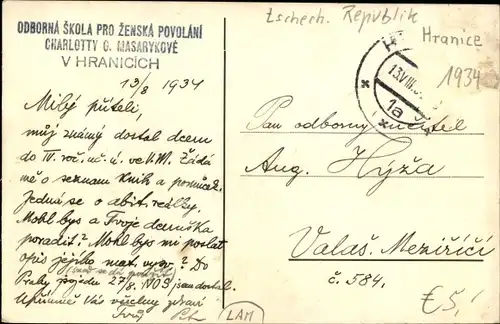 ODBORNÁ ŠKOLA PRO ŽENSKÁ POVOLÁNÍ
CHARLOTTY G. MASARYKOVÉ
V HRANICÍCH
tschech. Republik
Hranice
1934
13.VIII.
1a
13/8 1934
Milý příteli,
můj známý dostal dceru
do IV. roč. uč. ú. ve V.M. Žádá
mě o seznam knih a pomůcek.
Jedná se o abit. reálky.
Mohl bys a Tvoje dceruška
poradit? Mohl bys mi poslat
opis jejího mat. vysv.? Do
Prahy pojedu 27/8.
Upřímně Vás všechny zdraví
Tvůj
Pan odborný učitel
Aug. Hýža
Valaš. Meziříčí
č. 584.
LAM
€ 5,-